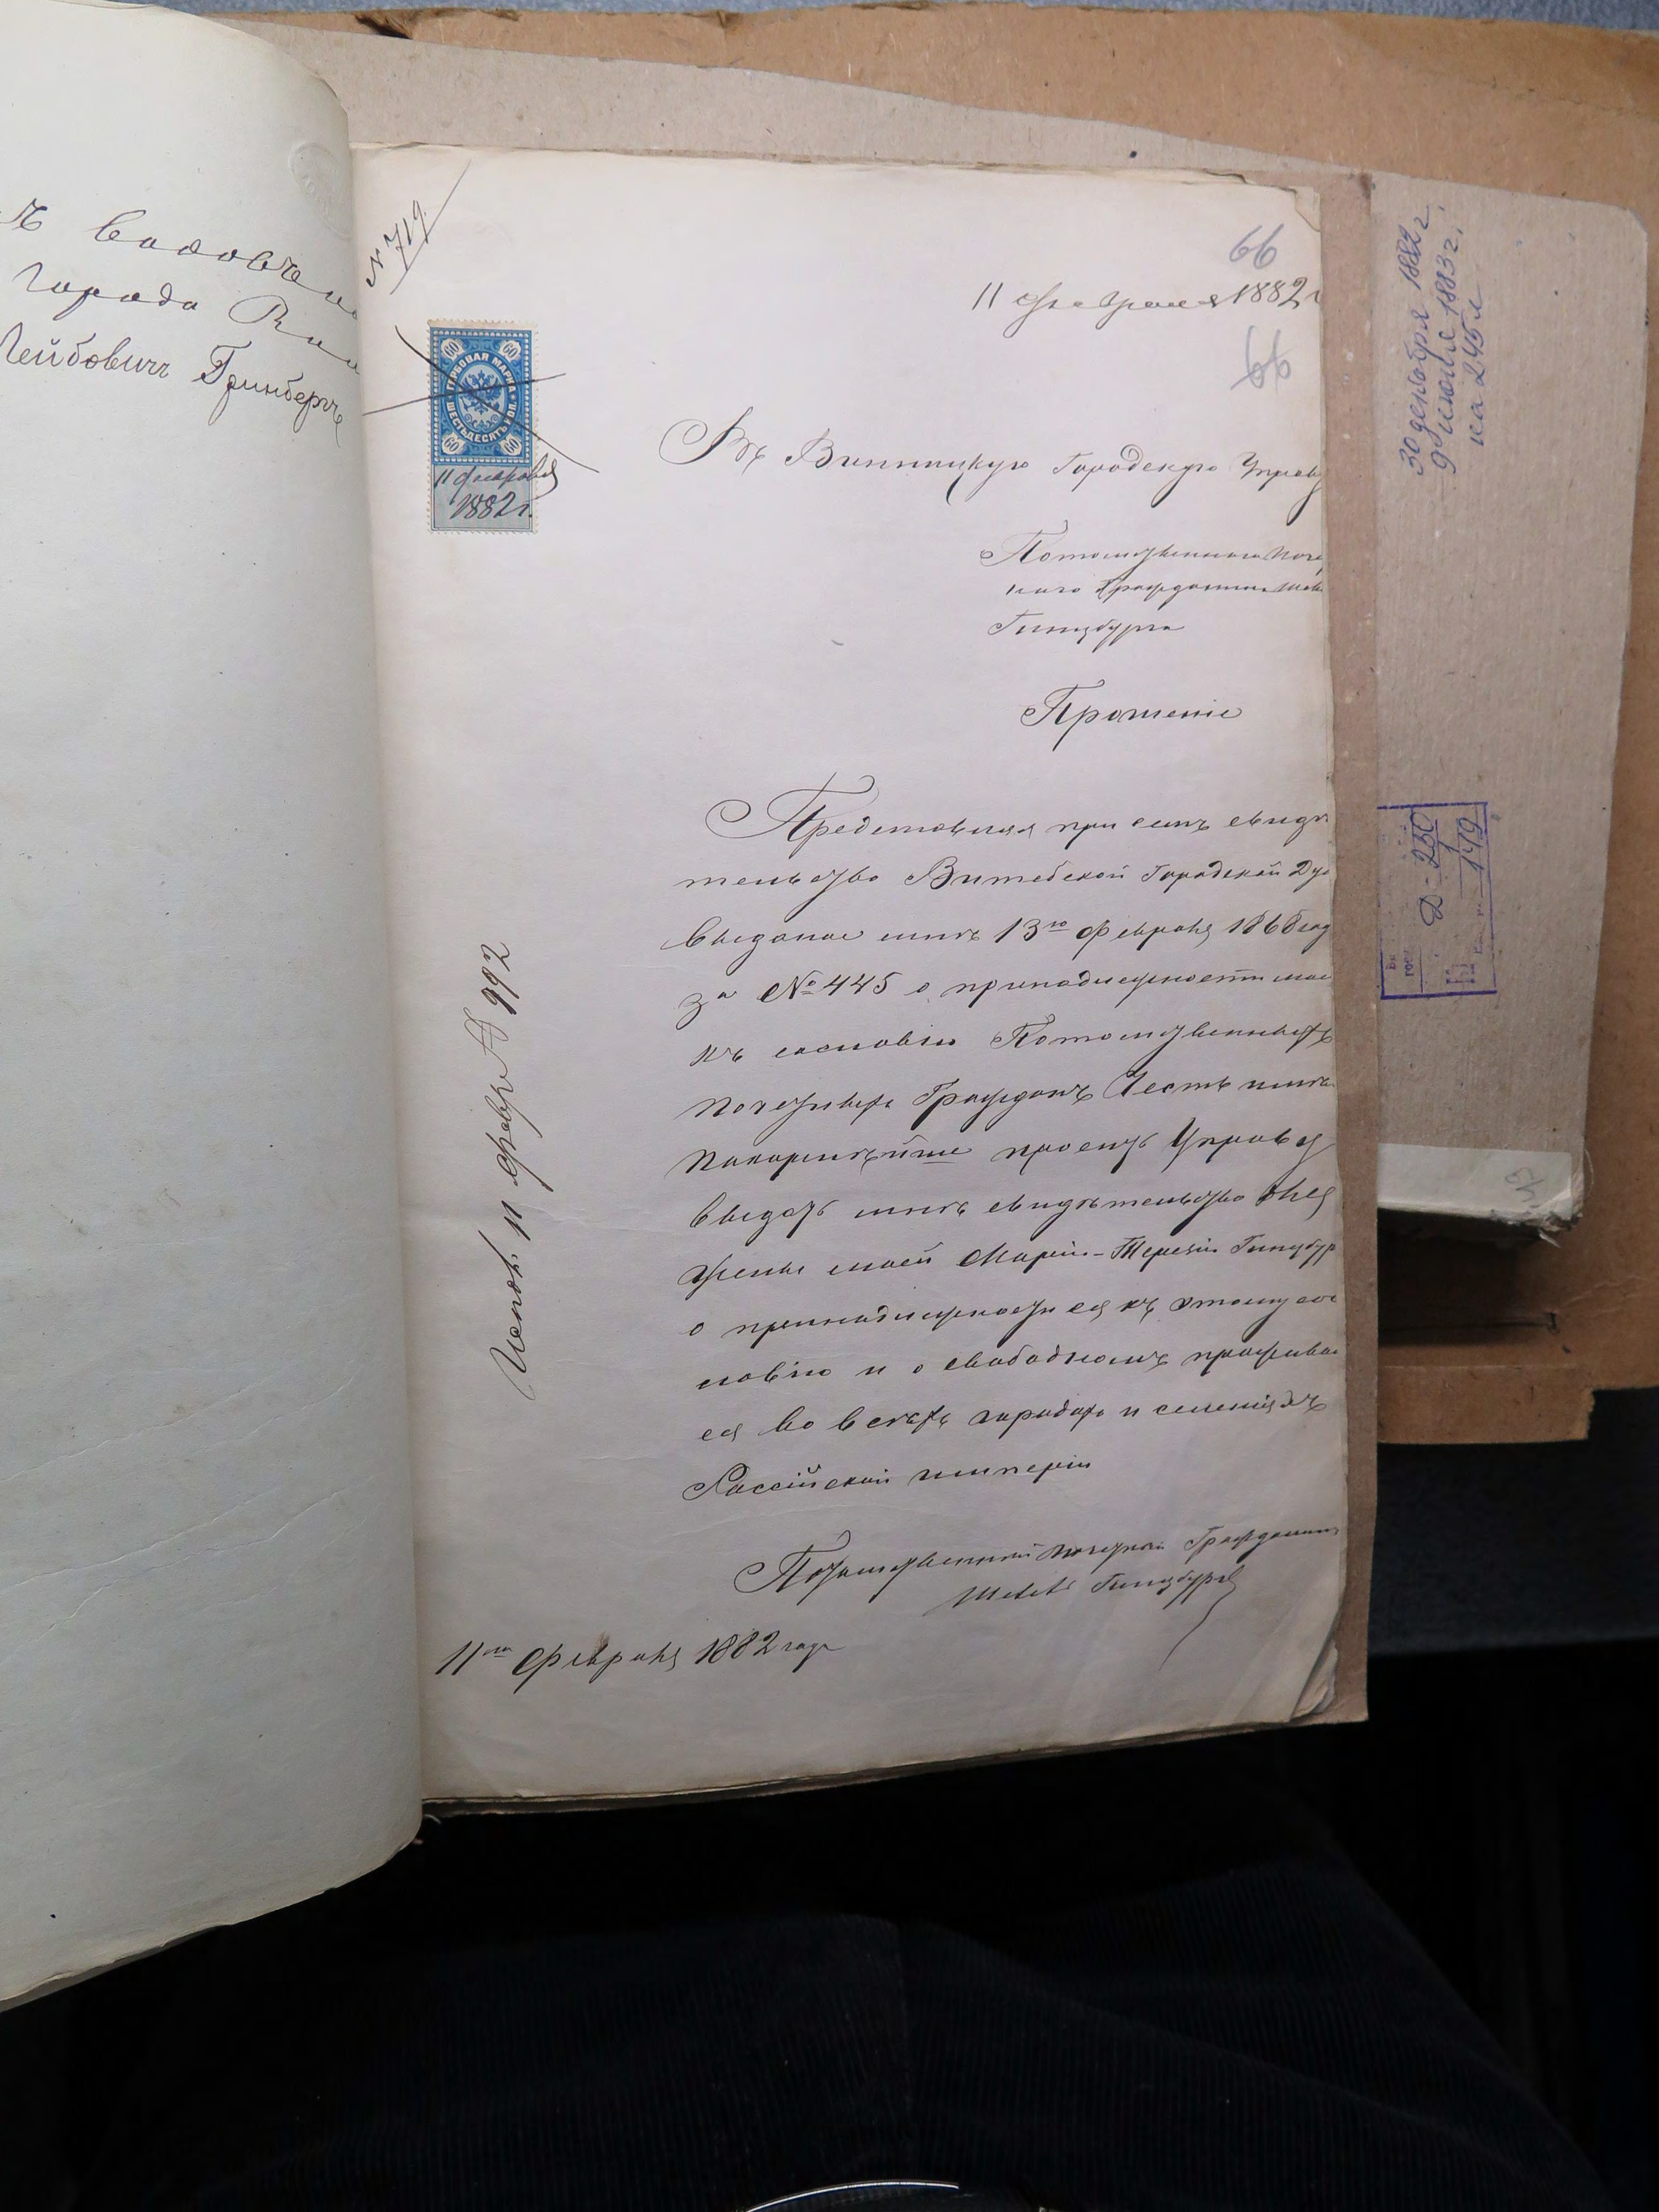 ъ
города
Лейбовичъ Гринбергъ
N 719
66
11 февраля 1882 г
66
60 60
ГЕРБОВАЯ МАРКА
ШЕСТЬДЕСЯТЪ КОП.
60 60
11 февраля
1882 г.
Въ Винницкую Городскую Управу
Потомственнаго Поче
наго Гражданина
Гинцбурга
Прошеніе
Представляя при семъ свидѣ
тельство Витебской Городской Ду
выданое мнѣ 13го Февраля 186
за № 445 о принадлежности мое
къ сословію Потомственныхъ
Почетныхъ Гражданъ Честь имѣю
Покорнѣйше просить Управу
выдать мнѣ свидѣтельство для
жены моей Маріи-Терезіи Гинцбур
о принадлежности ея къ этому сос
ловію и о свободномъ прожива
ея во всѣхъ городахъ и селеніяхъ
Россійской имперіи
Потомственный почетный Гражданинъ
Гинцбургъ
11го Февраля 1882 года
Исполн. 11 февр. № 992
30 декабря 1882 г.
9 июля 1883 г.
на 245 л
Д-230